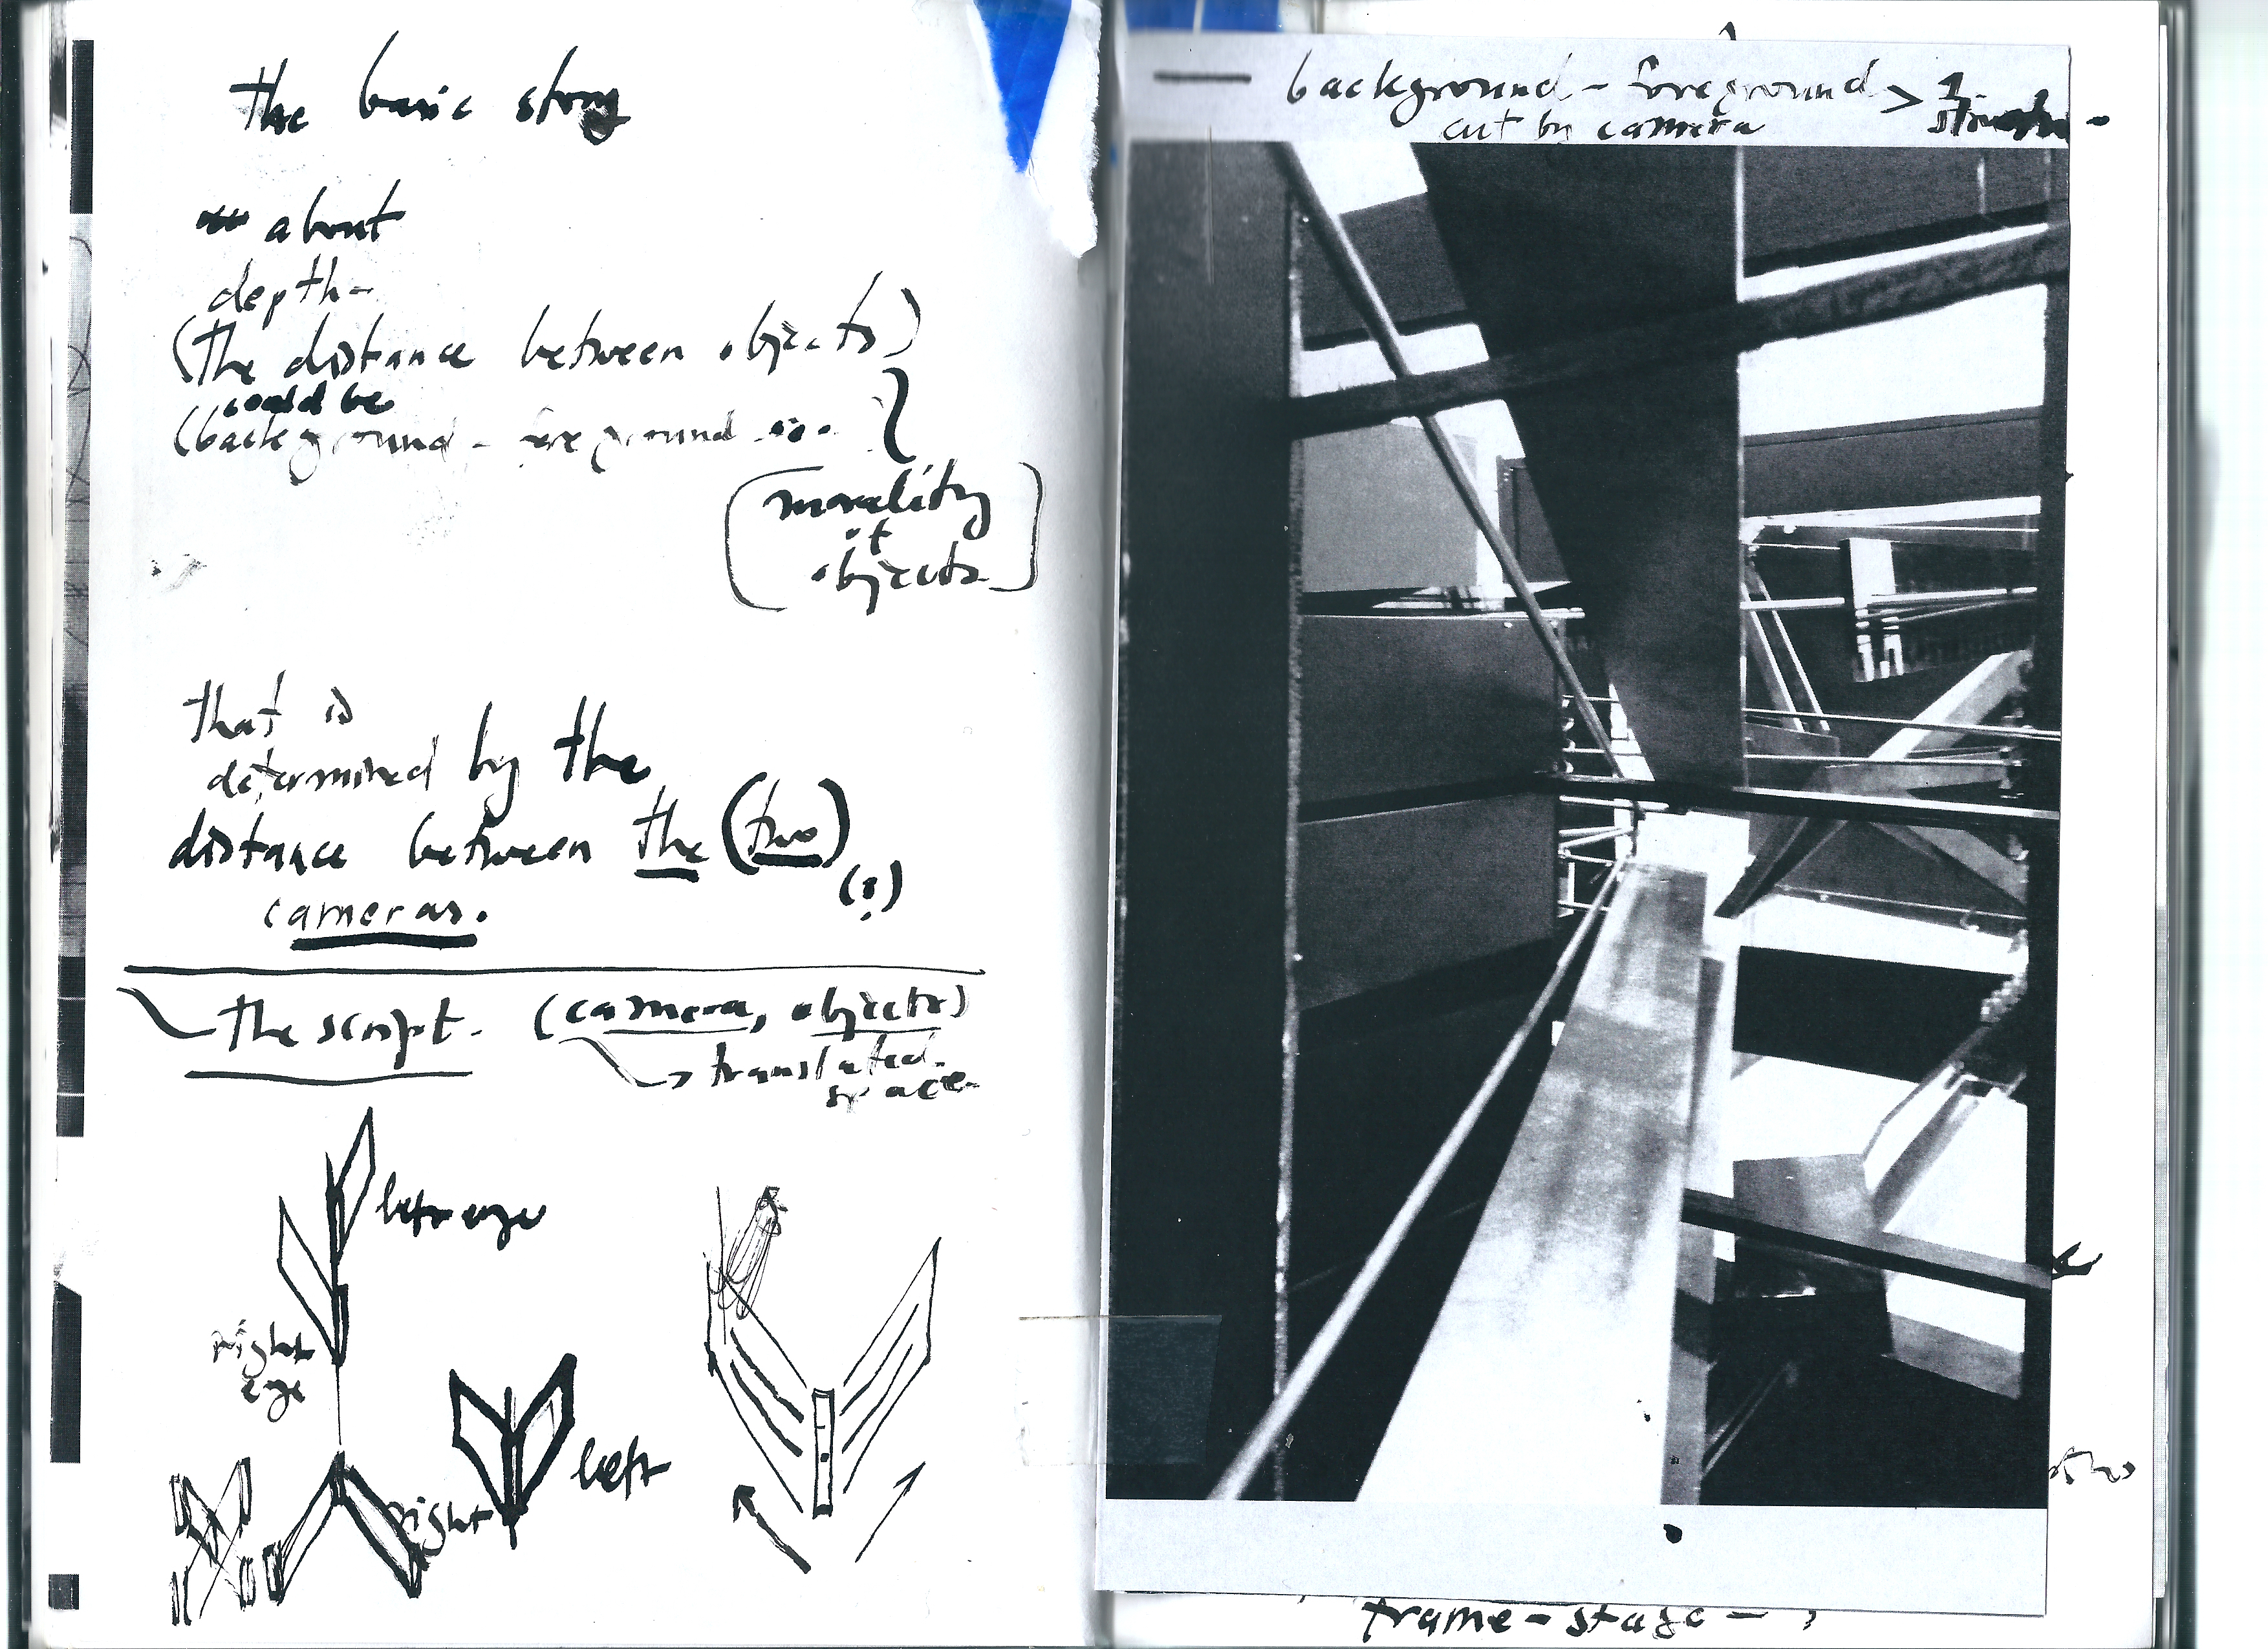 the basic story
about
depth-
(the distance between objects)
could be
(background - foreground ... }
(morality
of
objects)
that is
determined by the
distance between the (two)
(?)
cameras.
the script. (camera, objects)
→ translated
space
left eye
right
eye
left
right
background - foreground >
cut by camera
frame - stage -